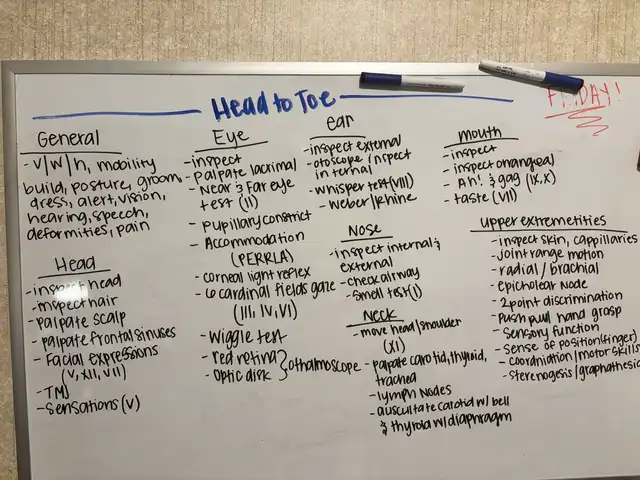 Head to Toe
FRIDAY!
General
- V/W/h, mobility
build, posture, groom,
dress, alert, vision,
hearing, speech,
deformities, pain
Head
- inspect head
- inspect hair
- palpate scalp
- palpate frontal sinuses
- Facial expressions
(V, XII, VII)
- TMJ
- Sensations (V)
Eye
- inspect
- palpate lacrimal
- Near & Far eye
test (II)
- pupillary constrict
- Accommodation
(PERRLA)
- corneal light reflex
- 6 cardinal fields gaze
(III, IV, VI)
- Wiggle test
- red retina
- optic disk
othalmoscope
ear
- inspect external
- otoscope inspect
internal
- Whisper test (VIII)
- Weber/Rhine
Nose
- inspect internal &
external
- check airway
- smell test (I)
Neck
- move head/shoulder
(XI)
- palpate carotid, thyroid,
trachea
- lymph Nodes
- auscultate carotid w/ bell
& thyroid w/ diaphragm
mouth
- inspect
- inspect
- Ah! & gag (IX, X)
- taste (VII)
upper extremetities
- inspect skin, cappillaries
- joint range motion
- radial / brachial
- epicholear Node
- 2point discrimination
- Push pull hand grasp
- Sensory function
- Sense of position (finger)
- Coordniation / motor skills
- sterenogesis / graphathesia